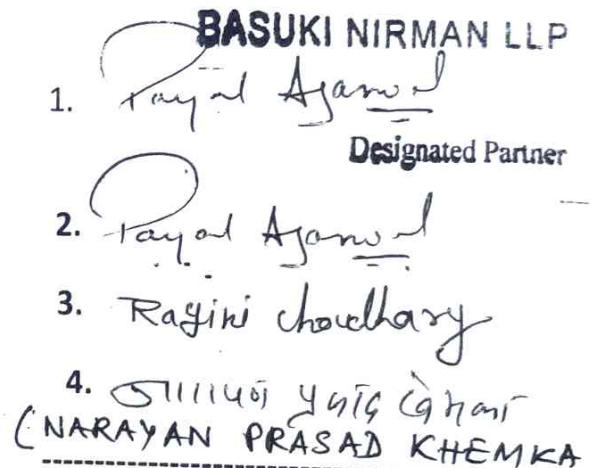 BASUKI NIRMAN LLP
1. Payal Agarwal
Designated Partner
2. Payal Agarwal
3. Ragini Choudhary
4. नारायण प्रसाद खेमका
(NARAYAN PRASAD KHEMKA